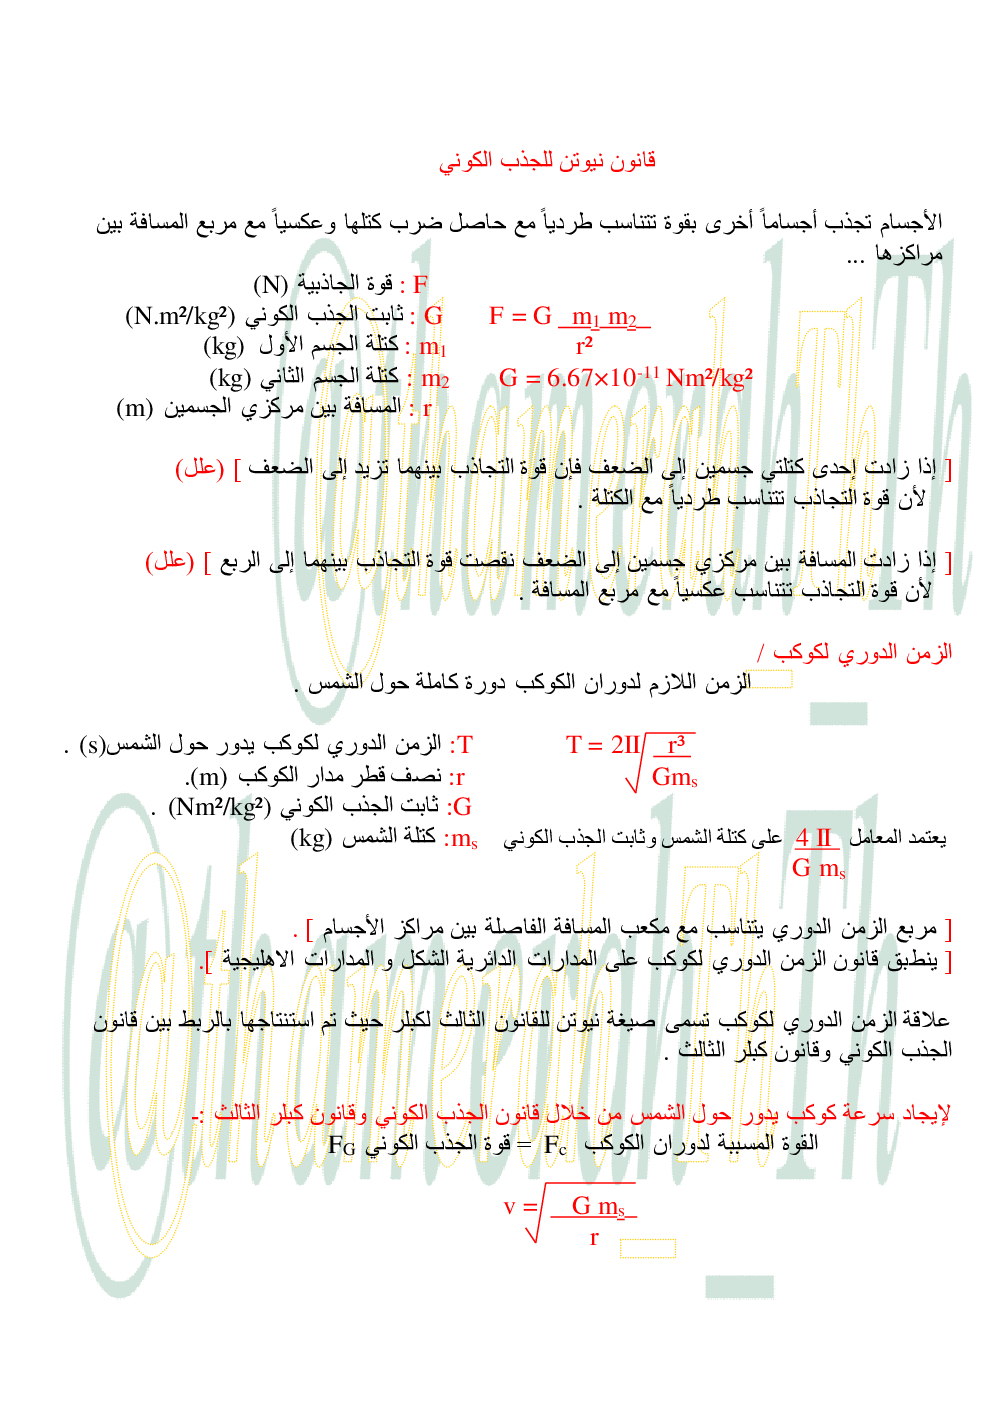 قانون نيوتن للجذب الكوني
الأجسام تجذب أجساماً أخرى بقوة تتناسب طردياً مع حاصل ضرب كتلها وعكسياً مع مربع المسافة بين
مراكزها ...
F : قوة الجاذبية (N)
G : ثابت الجذب الكوني (N.m²/kg²) F = G m₁ m₂
m₁ : كتلة الجسم الأول (kg) r²
m₂ : كتلة الجسم الثاني (kg) G = 6.67×10⁻¹¹ Nm²/kg²
r : المسافة بين مركزي الجسمين (m)
[ إذا زادت إحدى كتلتي جسمين إلى الضعف فإن قوة التجاذب بينهما تزيد إلى الضعف ] (علل)
لأن قوة التجاذب تتناسب طردياً مع الكتلة .
[ إذا زادت المسافة بين مركزي جسمين إلى الضعف نقصت قوة التجاذب بينهما إلى الربع ] (علل)
لأن قوة التجاذب تتناسب عكسياً مع مربع المسافة .
الزمن الدوري لكوكب /
الزمن اللازم لدوران الكوكب دورة كاملة حول الشمس .
T: الزمن الدوري لكوكب يدور حول الشمس(s) . T = 2II √ r³
r: نصف قطر مدار الكوكب (m). Gmₛ
G: ثابت الجذب الكوني (Nm²/kg²) .
يعتمد المعامل 4 II على كتلة الشمس وثابت الجذب الكوني mₛ: كتلة الشمس (kg)
G mₛ
[ مربع الزمن الدوري يتناسب مع مكعب المسافة الفاصلة بين مراكز الأجسام ] .
[ ينطبق قانون الزمن الدوري لكوكب على المدارات الدائرية الشكل و المدارات الاهليجية ].
علاقة الزمن الدوري لكوكب تسمى صيغة نيوتن للقانون الثالث لكبلر حيث تم استنتاجها بالربط بين قانون
الجذب الكوني وقانون كبلر الثالث .
لإيجاد سرعة كوكب يدور حول الشمس من خلال قانون الجذب الكوني وقانون كبلر الثالث :-
القوة المسببة لدوران الكوكب Fc = قوة الجذب الكوني FG
v = √ G mₛ
r
@thamerahTh_
@thamerahTh_